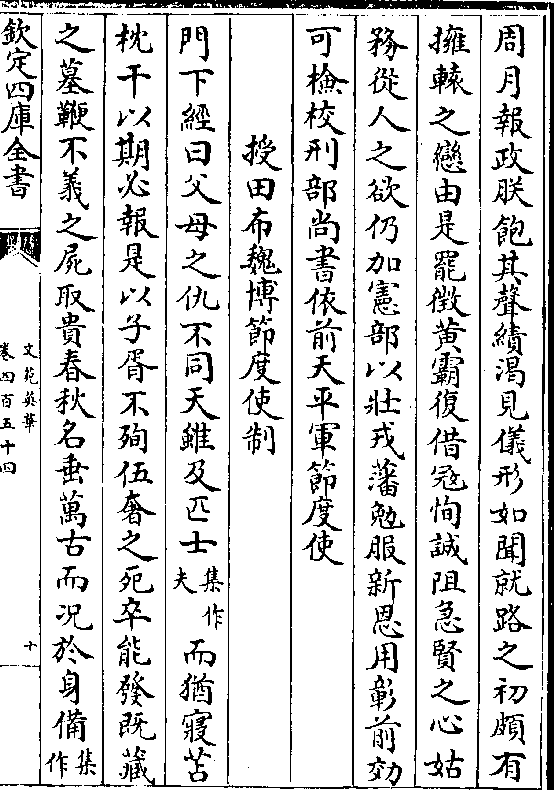 周月報政朕飽其聲績渴見儀形如聞就路之初頗有
擁轅之戀由是罷徴黄霸復借宼恂誠阻急賢之心姑
務從人之欲仍加憲部以壯戎藩勉服新恩用彰前効
可檢校刑部尚書依前天平軍節度使
授田布魏博節度使制
門下經曰父母之仇不同天雖及匹士集作夫而猶寢苫
枕干以期必報是以子胥不殉伍奢之死卒能發既藏
之墓鞭不義之屍取貴春秋名垂萬古而况於身備集作
欽定四庫全書
文苑英華
卷四百五十四
十